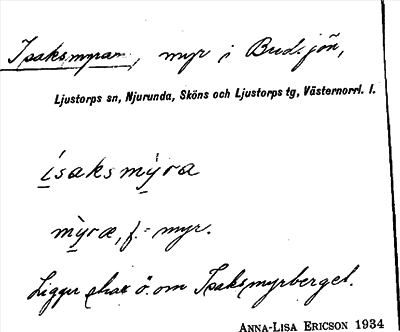 Isaksmyran, myr i Bredsjön,
Ljustorps sn, Njurunda, Sköns och Ljustorps tg, Västernorrl. l.
ísaksmy̍ra
my̍ræ, f. = myr.
Ligger strax ö. om Isaksmyrberget.
ANNA-LISA ERICSON 1934